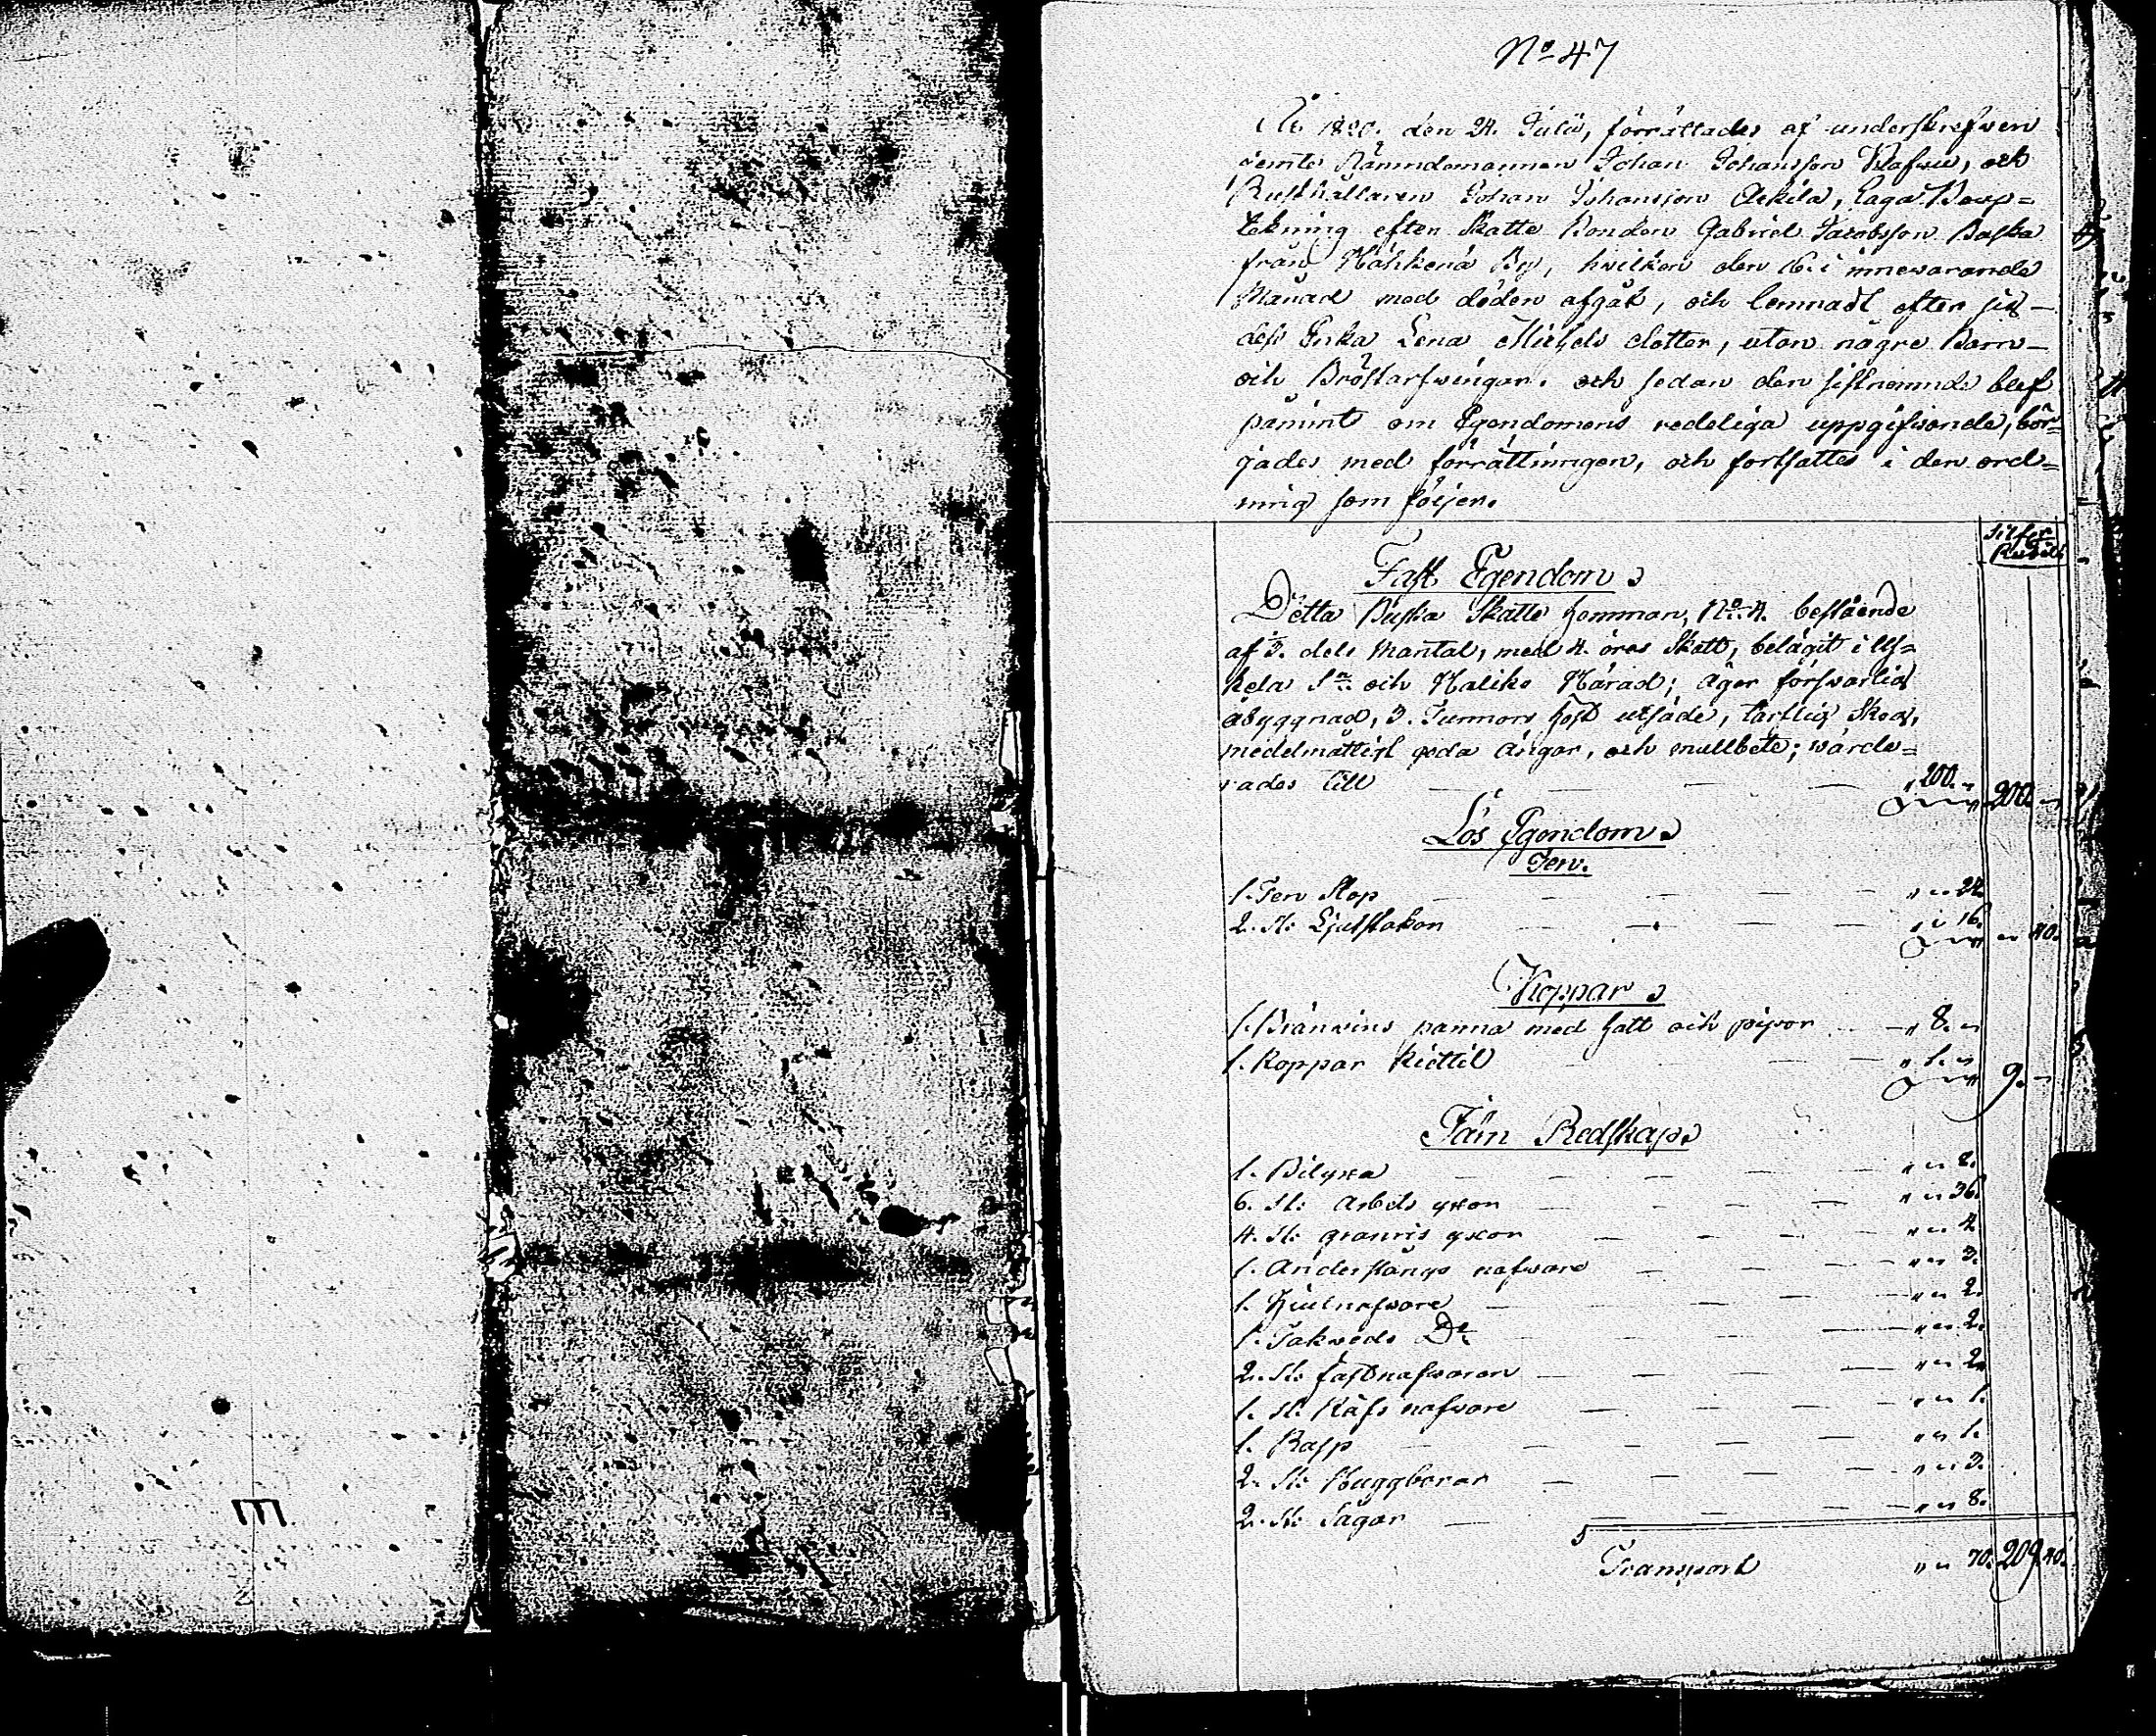 No 47
År 1820. den 24. Julii, förrättades af underskrefven
jemte Nämndemannen Johan Johansson Klafvu, och
Rusthållaren Johan Johansson Ackila, Laga Boup=
tekning efter Skatte Bonden Gabriel Jacobsson Buska
från Håhkenä By, hvilken den 16. i innevarande
Månad med döden afgåt, och lemnadt efter sig
dess Enka Lena Michels dotter, utan någre Barn
och Bröstarfvingar. och sedan den sistnemnde blef
påmint om Egendomens redeliga uppgifvande, bör=
jades med förrättningen, och fortsattes i den ord=
ning som följer.
Silfver
Rubel
Fast Egendom
Detta Buska Skatte hemman, No 4. bestående
af 3. dels Mantal, med 4. öres Skatt, belägit i Us=
kela Sn och Haliko Härad; äger försvarlig
åbyggnad, 3. Tunnors höst utsäde, tarflig Skog,
medelmåttigt goda ängar, och mullbete; värde=
rades till — — — " 200. " 200. "
Lös Egendom
Ten.
1. Ten Stop — — — " " 24.
2. St: Ljusstakar — — — " " 16. " 40.
Koppar
1. Bränvins panna med hatt och pipor — " 8. "
1. Koppar kiettil — — " 1. " 9. "
Järn Redskap
1. Bilyxa — — — " " 8.
6. St: Arbets yxor — — — " " 36.
4. St: granris yxor — — — " " 4.
1. Anderstångs nafvare — — — " " 3.
1. Hjulnafvare — — — " " 2.
1. Takveds Do — — — " " 2.
2. St: fastnafvaren — — — " " 2.
1. St: Räfs nafvare — — — " " 1.
1. Rasp — — — " " 1.
2. St: Huggborar — — — " " 3.
2. St: Sågar — — — " " 8.
Transport " " 70. 209. 40.